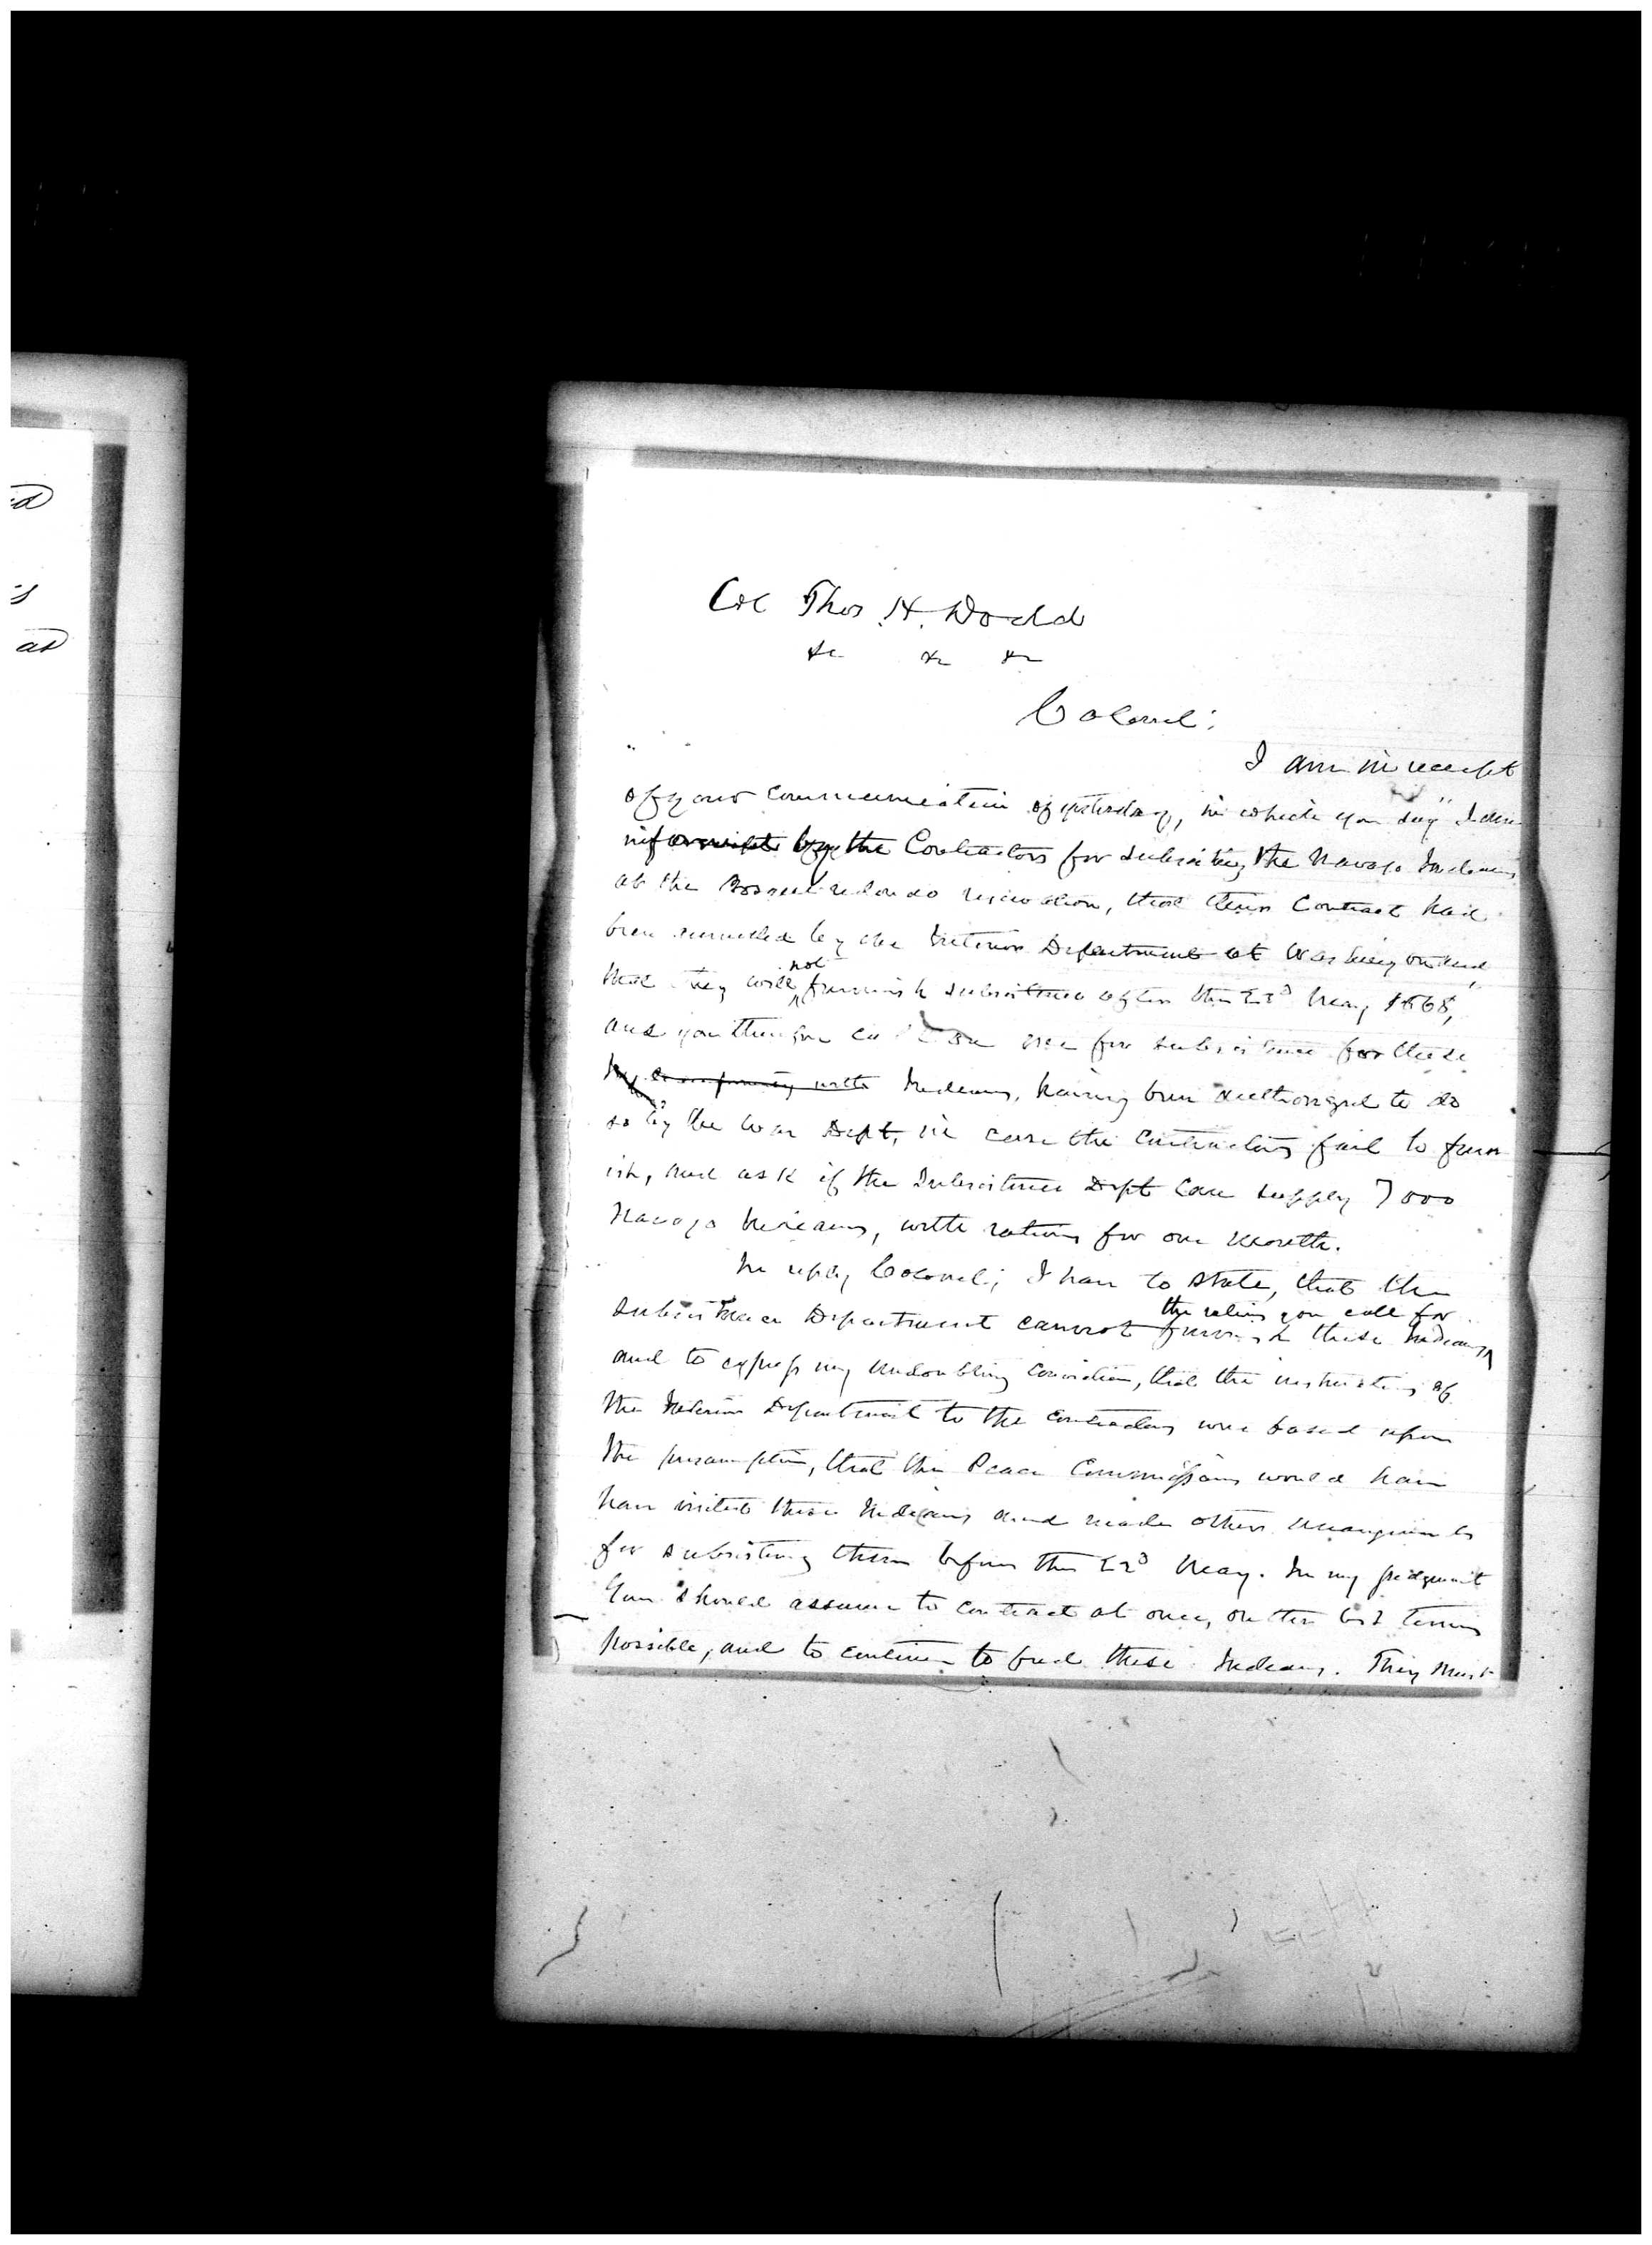 Col Thos. H. Dodd
&c &c &c
Colonel:
I am in receipt
of your communication of yesterday, in which you say "I am
informed by the Contractors for subsisting the Navajo Indians
at the Bosque redondo reservation, that their Contract had
been annulled by the Interior Department at Washington and
that they will not furnish subsistence after the 23d May 1868,"
and you therefore call on me for subsistence for these
In conformity with Indians, having been authorized to do
so by the War Dept, in case the Contractors fail to furn
ish, and ask if the Subsistence Dept can supply 7000
Navajo Indians, with rations for one month.
In reply, Colonel; I have to state, that the
Subsistence Department cannot furnish these Indians the rations you call for
and to express my undoubting conviction, that the instructions of
the Interior Department to the Contractors were based upon
the presumption, that the Peace Commissioners would have
have visited these Indians and made other arrangements
for subsisting them before the 23d May. In my judgment
You should assume to contract at once, on the best terms
possible, and to continue to feed these Indians. They must
id
is
as